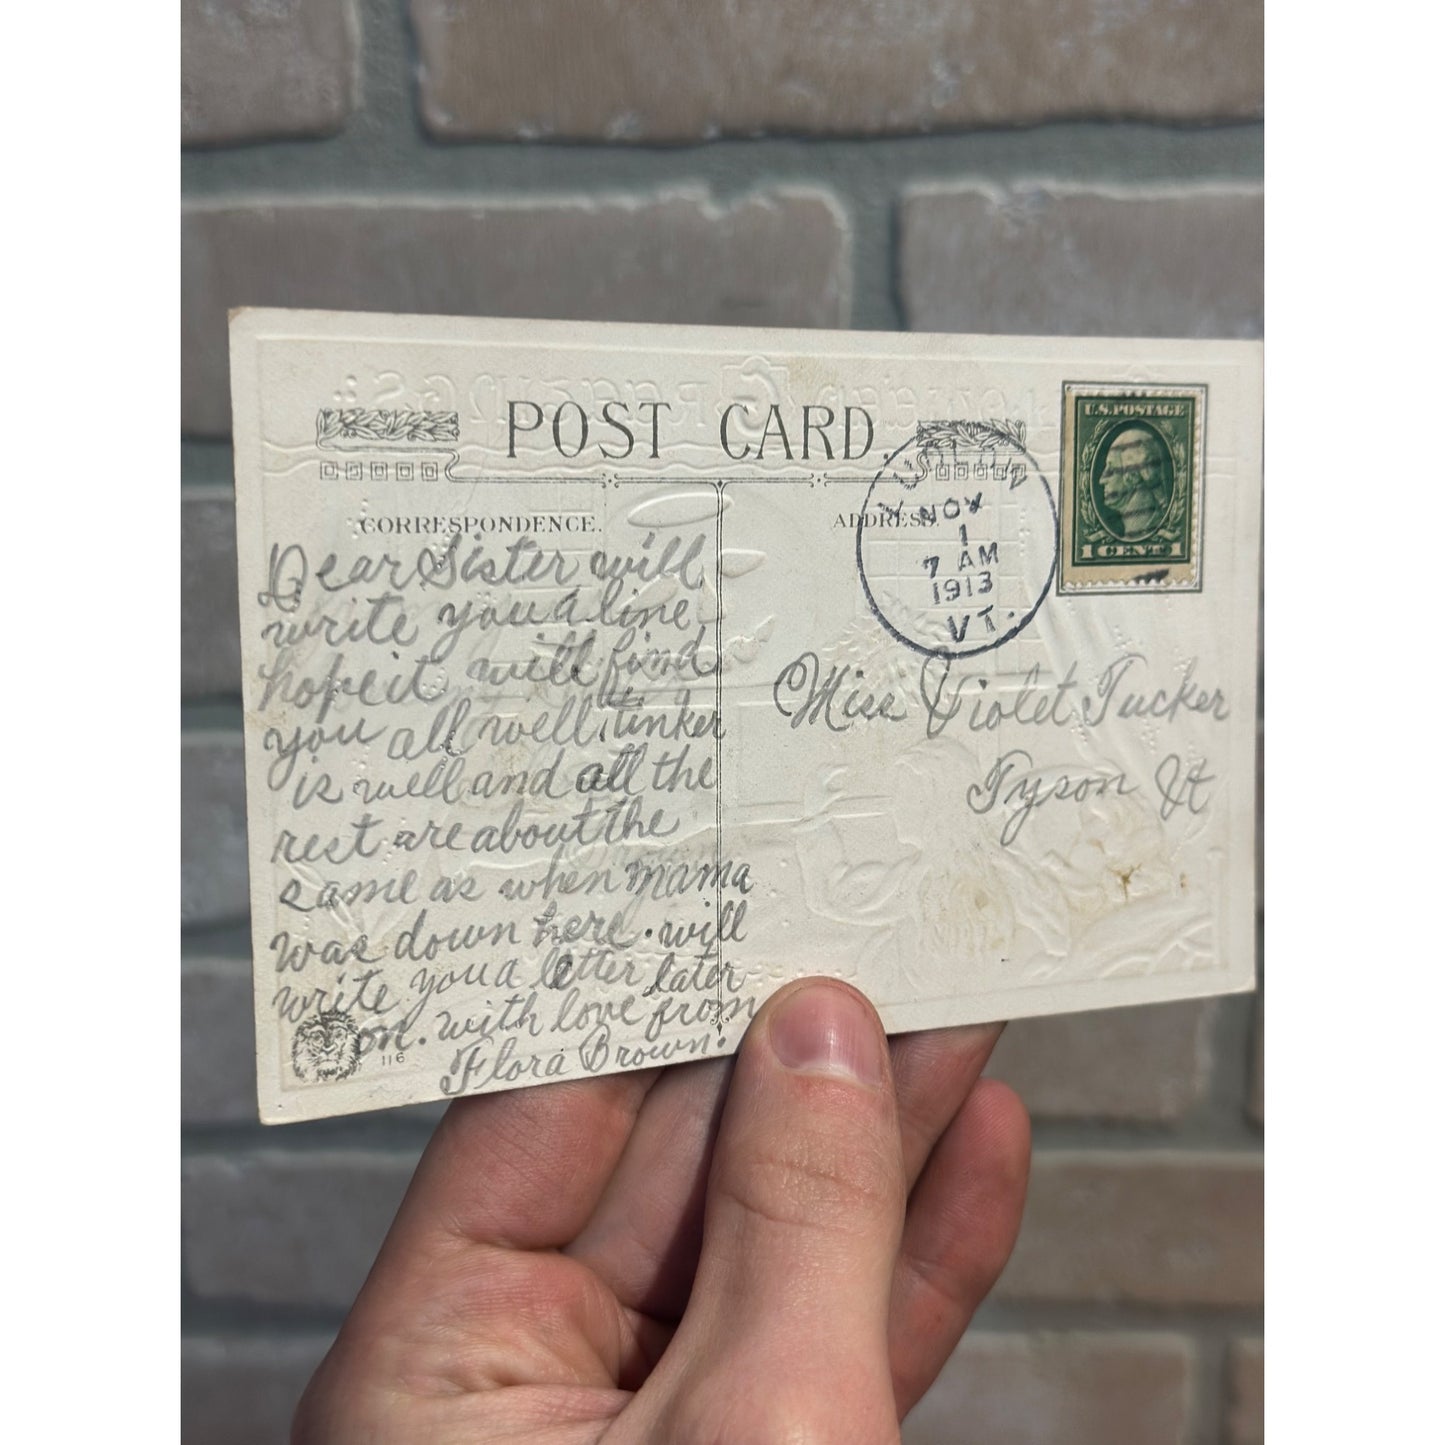 POST CARD.
CORRESPONDENCE.
ADDRESS
LUDLOW
NOV
1
7 AM
1913
VT.
U.S. POSTAGE
1 CENT 1
Dear Sister will
write you a line
hope it will find
you all well. tinker
is well and all the
rest are about the
same as when mama
was down here. will
write you a letter later
on. with love from
Flora Brown.
Miss Violet Tucker
Tyson Vt
116